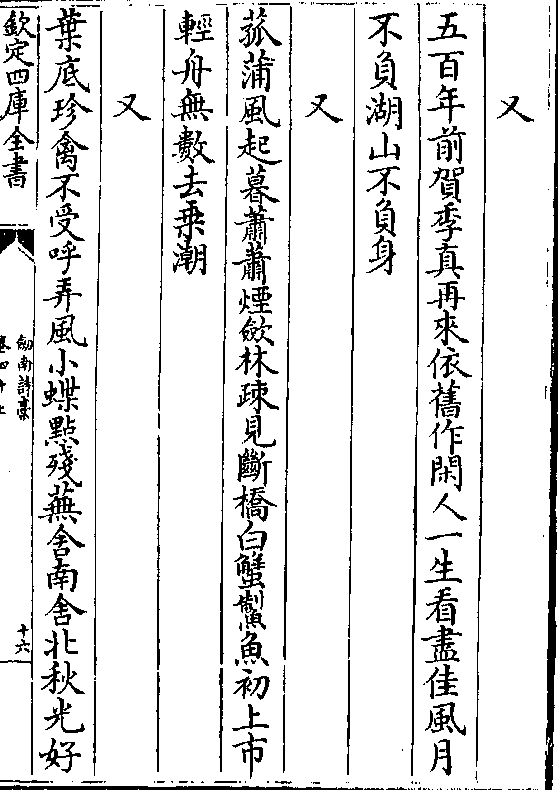 又
五百年前賀季真再來依舊作閑人一生看盡佳風月
不負湖山不負身
又
菰蒲風起暮蕭蕭煙斂林疎見斷橋白蟹鱃魚初上市
輕舟無數去乗潮
又
葉底珍禽不受呼弄風小蝶點殘蕪舍南舍北秋光好
欽定四庫全書
劔南詩藁
十六